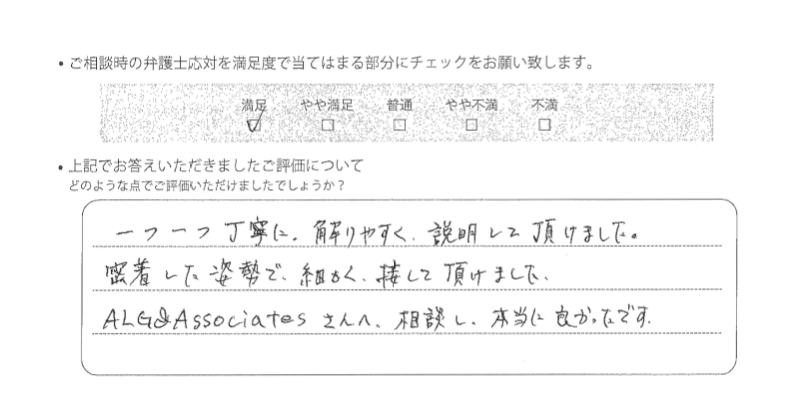 ・ご相談時の弁護士応対を満足度で当てはまる部分にチェックをお願い致します。
満足 やや満足 普通 やや不満 不満
☑ □ □ □ □
・上記でお答えいただきましたご評価について
どのような点でご評価いただけましたでしょうか？
一つ一つ丁寧に、解りやすく、説明して頂けました。
密着した姿勢で、細かく、接して頂けました、
ALG&Associates さんへ、相談し、本当に良かったです.